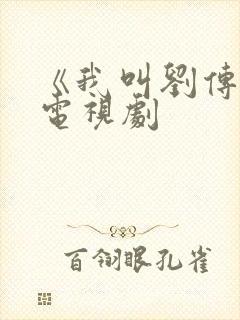 《我叫劉傳
電視劇
百翎眼孔雀